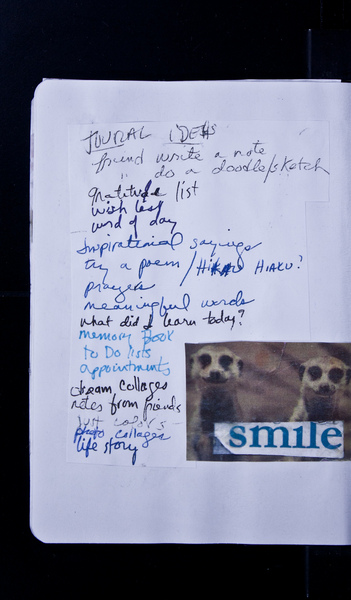 JOURNAL IDEAS
friend write a note
" do a doodle/sketch
gratitude list
wish list
word of day
inspirational sayings
try a poem / HIAKU?
prayers
meaningful words
what did I learn today?
memory book
to Do lists
appointments
dream collages
notes from friends
just colors
photo collages
life story
smile